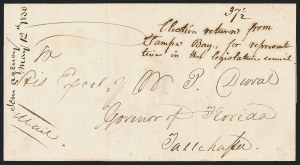 Election returns from
Tampa Bay, for represent
ative in the legislative council
His Excely W P. Duval
Governor of Florida
Tallahassee
Mail
May 12th 1830